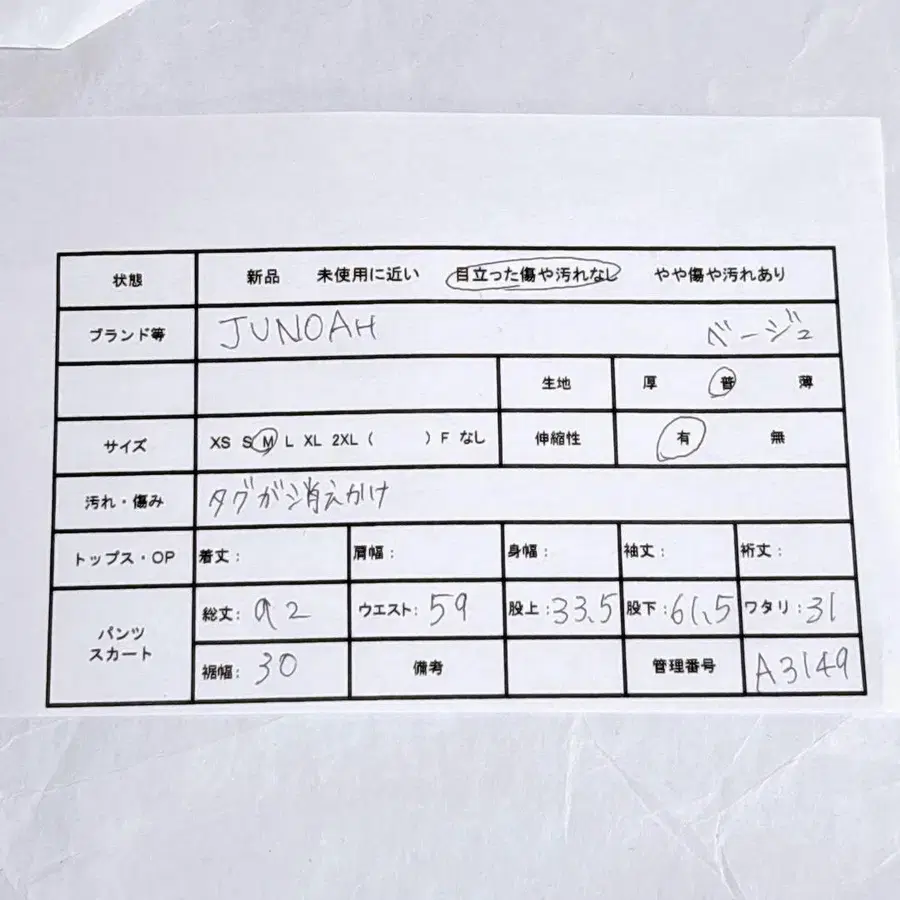 状態 新品 未使用に近い 目立った傷や汚れなし やや傷や汚れあり
ブランド等 JUNOAH ベージュ
生地 厚 普 薄
サイズ XS S M L XL 2XL ( ) F なし 伸縮性 有 無
汚れ・傷み タグが消えかけ
トップス・OP 着丈: 肩幅: 身幅: 袖丈: 裄丈:
パンツ スカート 総丈: 92 ウエスト: 59 股上: 33.5 股下: 61.5 ワタリ: 31
裾幅: 30 備考 管理番号 A3149